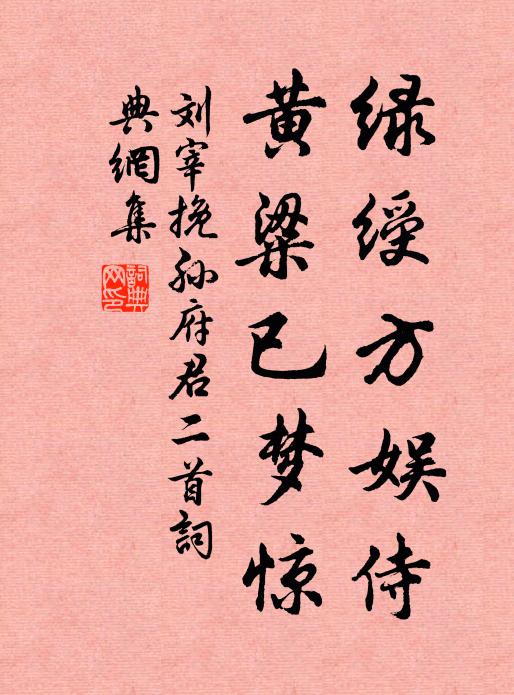 绿绶方娱侍
黄粱已梦惊
刘宰挽孙府君二首詞
典網集
詞典网印